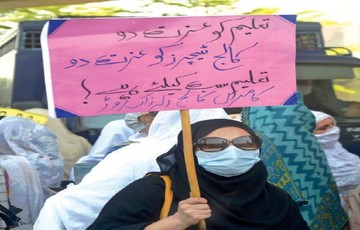 تعلیم کو عزت دو
کالج ٹیچرز کو عزت دو
تعلیم سب کیلئے ہے !
کامرس کالج